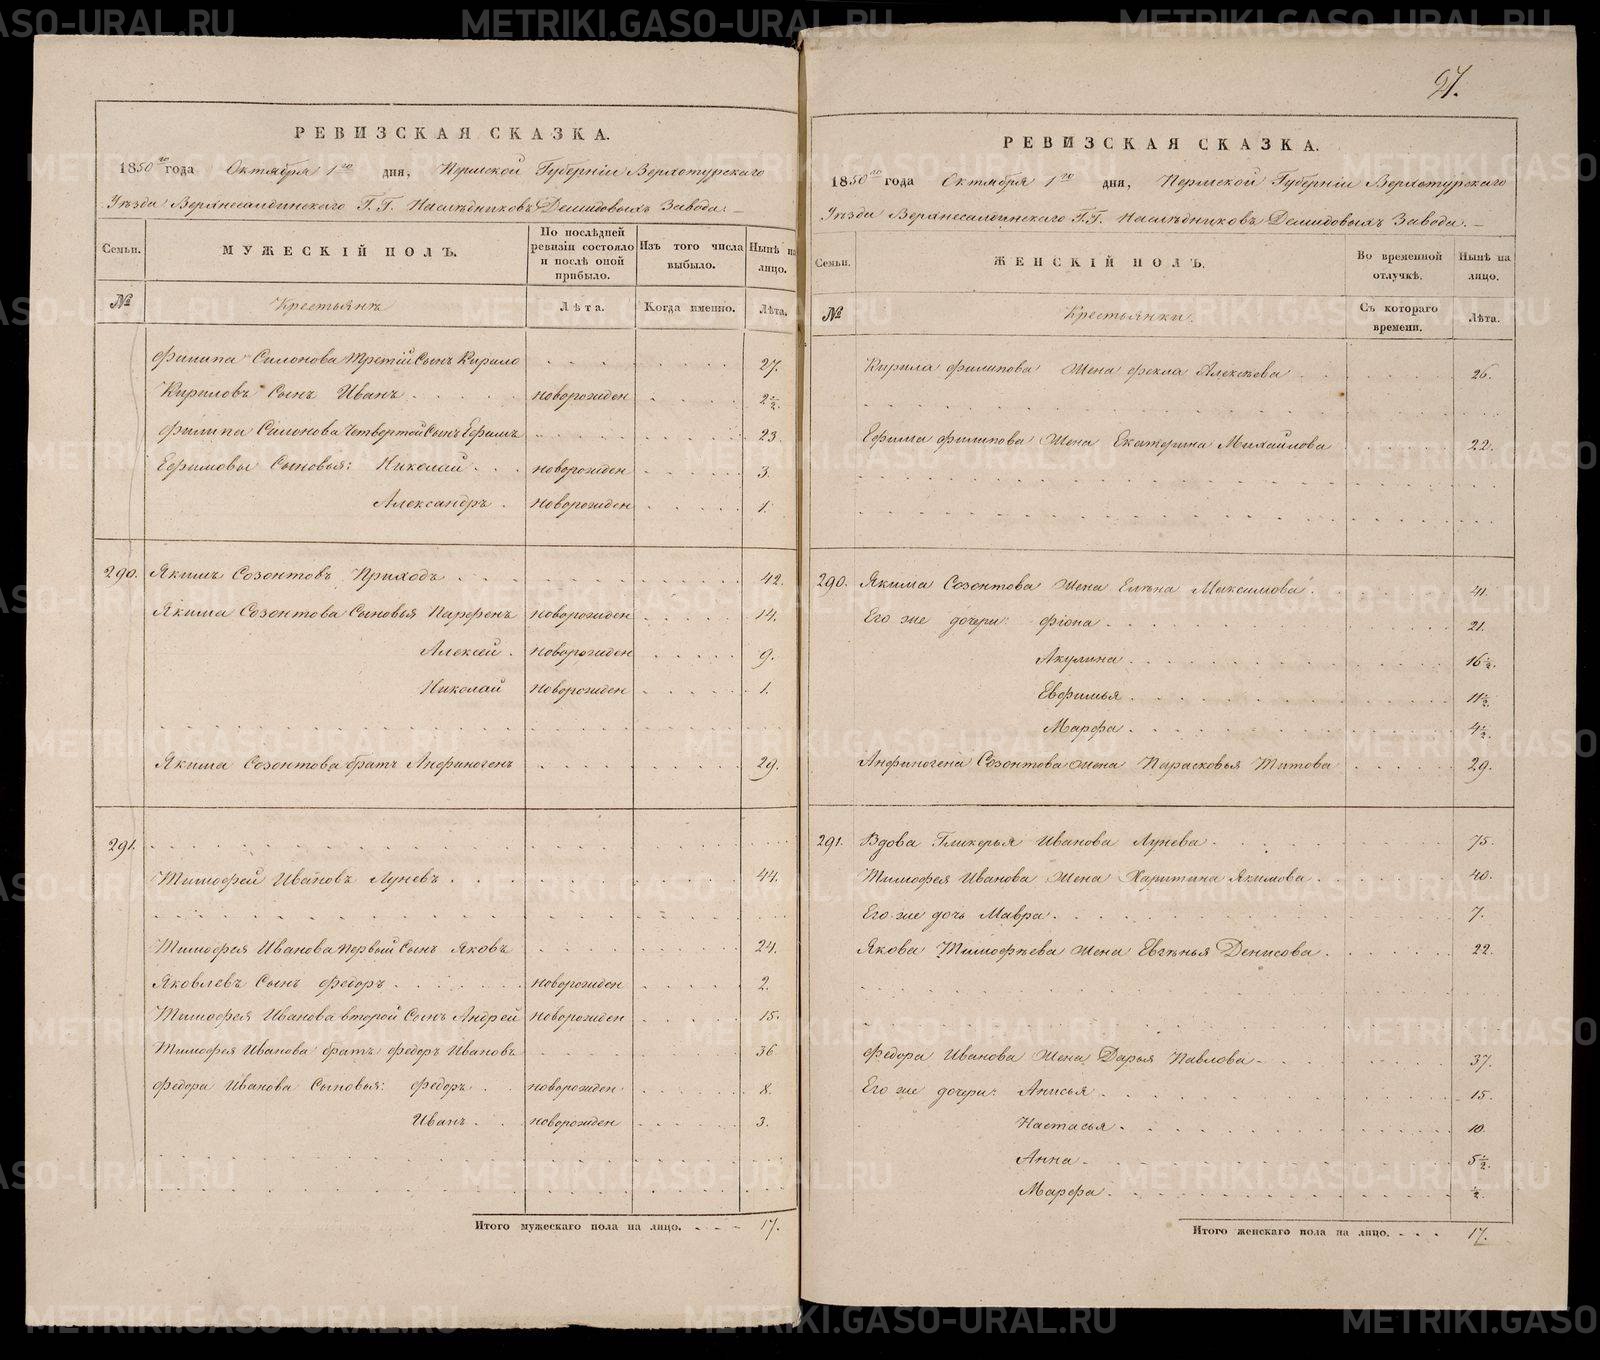 РЕВИЗСКАЯ СКАЗКА.
1850го года Октября 1го дня, Пермской Губерніи Верхотурскаго
Уѣзда Верхнесалдинскаго Г.Г. Наслѣдниковъ Демидовыхъ Завода.
Семьи. МУЖЕСКІЙ ПОЛЪ. По послѣдней ревизіи состояло и послѣ оной прибыло. Изъ того числа выбыло. Нынѣ на лицо.
№ Крестьянъ Лѣта. Когда именно. Лѣта.
Филипа Силонова Третій Сынъ Кирило 27.
Кириловъ Сынъ Иванъ новорожден 2½.
Филипа Силонова Четвертой Сынъ Ефимъ 23.
Ефимовы Сыновья: Николай новорожден 3.
Александръ новорожден 1.
290. Якимъ Созонтовъ Приходъ 42.
Якима Созонтова Сыновья Парфенъ новорожден 14.
Алексѣй новорожден 9.
Николай новорожден 1.
Якима Созонтова братъ Анфиногенъ 29.
291.
Тимофей Ивановъ Луневъ 44.
Тимофея Иванова первый Сынъ Яковъ 24.
Яковлевъ Сынъ Федоръ новорожден 2.
Тимофея Иванова второй Сынъ Андрей новорожден 15.
Тимофея Иванова братъ Федоръ Ивановъ 36
Федора Иванова Сыновья: Федоръ новорожден 8.
Иванъ новорожден 3.
Итого мужескаго пола на лицо. 17.
27.
РЕВИЗСКАЯ СКАЗКА.
1850го года Октября 1го дня, Пермской Губерніи Верхотурскаго
Уѣзда Верхнесалдинскаго Г.Г. Наслѣдниковъ Демидовыхъ Завода.
Семьи. ЖЕНСКІЙ ПОЛЪ. Во временной отлучкѣ. Нынѣ на лицо.
№ Крестьянки. Съ котораго времени. Лѣта.
Кирила Филипова Жена Фекла Алексѣева 26.
Ефима Филипова Жена Екатерина Михайлова 22.
290. Якима Созонтова Жена Елѣна Максимова 41.
Его же дочери: Фіона 21.
Акулина 16½.
Евфимья 11½.
Марфа 4½.
Анфиногена Созонтова Жена Парасковья Титова 29.
291. Вдова Гликерья Иванова Лунева 75.
Тимофея Иванова Жена Харитина Якимова 40.
Его же дочь Мавра 7.
Якова Тимофѣева Жена Евгѣнья Денисова 22.
Федора Иванова Жена Дарья Павлова 37.
Его же дочери: Анисья 15.
Настасья 10.
Анна 5½.
Марфа ½.
Итого женскаго пола на лицо. 17.
METRIKI.GASO-URAL.RU